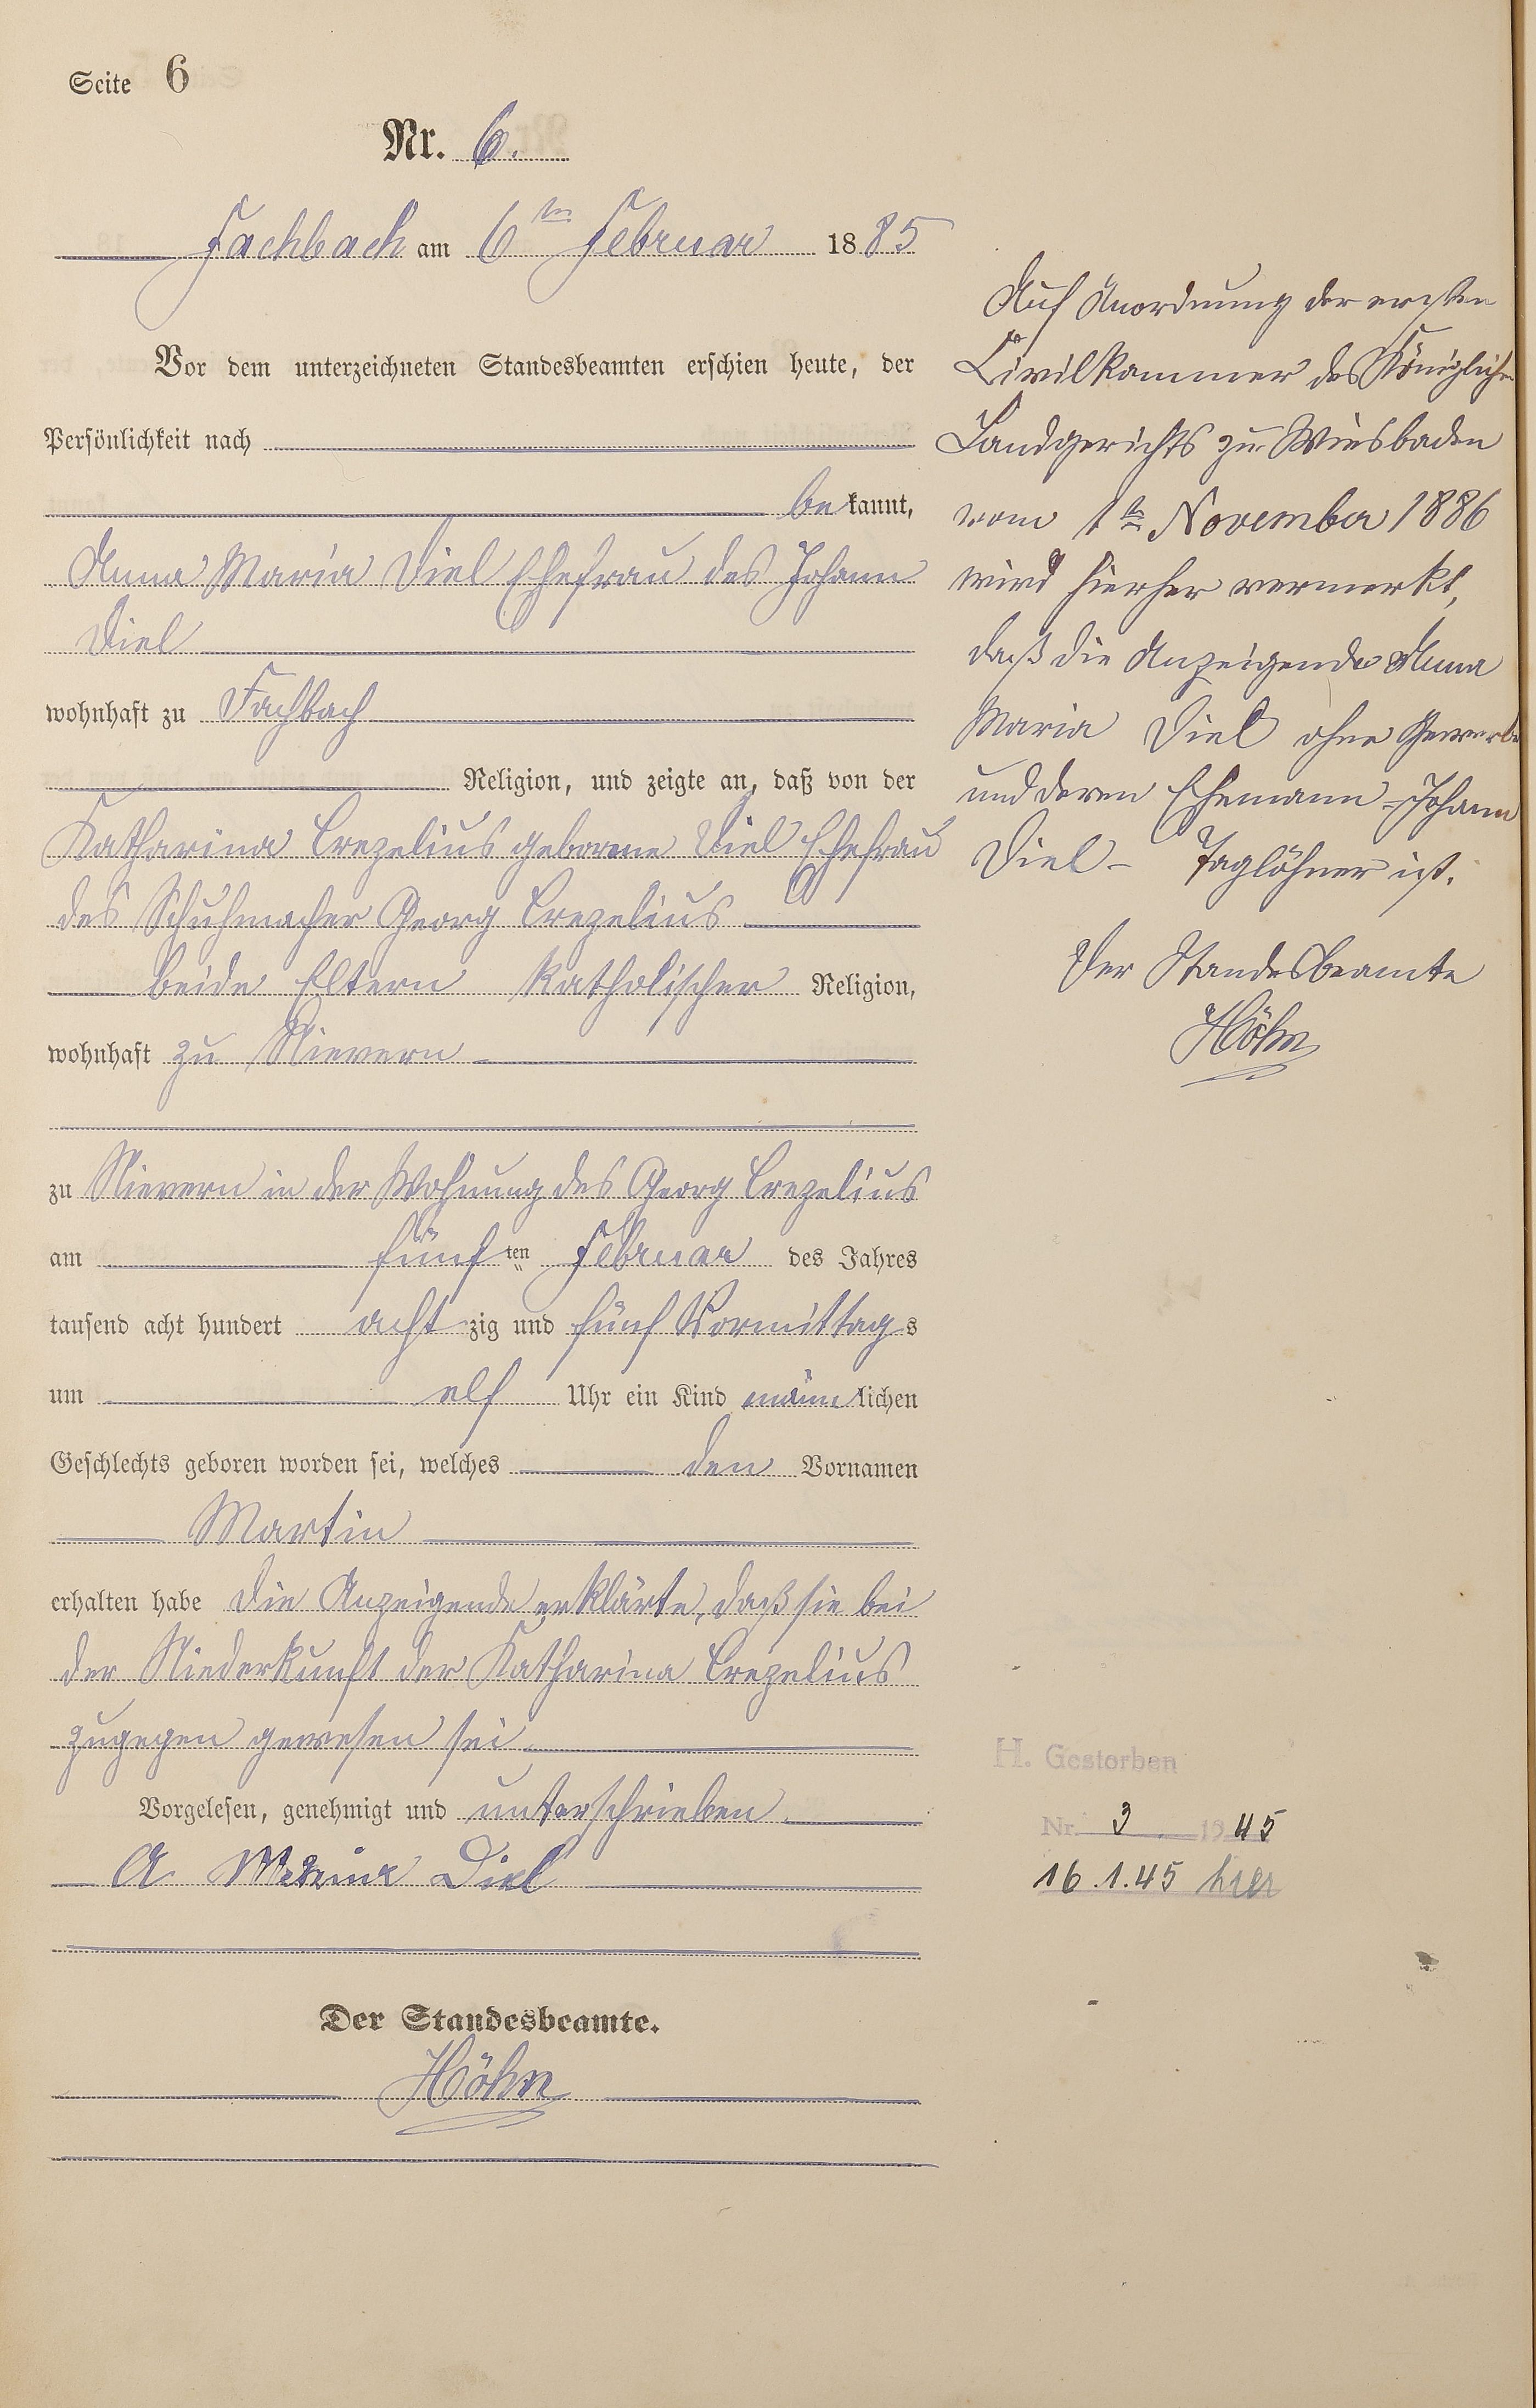 Seite 6
Nr. 6.
Fachbach am 6ten Februar 1885
Vor dem unterzeichneten Standesbeamten erschien heute, der
Persönlichkeit nach
bekannt,
Anna Maria Diel Ehefrau des Johann
Diel
wohnhaft zu Fachbach
Religion, und zeigte an, daß von der
Katharina Crezelius geborene Diel Ehefrau
des Schuhmacher Georg Crezelius
beide Eltern katholischer Religion,
wohnhaft zu Nievern
zu Nievern in der Wohnung des Georg Crezelius
am fünften Februar des Jahres
tausend acht hundert achtzig und fünf Vormittags
um elf Uhr ein Kind männlichen
Geschlechts geboren worden sei, welches den Vornamen
Martin
erhalten habe Die Anzeigende erklärte, daß sie bei
der Niederkunft der Katharina Crezelius
zugegen gewesen sei.
Vorgelesen, genehmigt und unterschrieben
A Diel
Der Standesbeamte.
Höhn
Auf Anordnung der ersten
Civilkammer des Königlichen
Landgerichts zu Wiesbaden
vom 1ten November 1886
wird hierher vermerkt,
daß die Anzeigende Anna
Maria Diel ohne Gewerbe
und deren Ehemann Johann
Diel - Taglöhner ist.
Der Standesbeamte
Höhn
H. Gestorben
Nr. 3 1945
16.1.45 hier